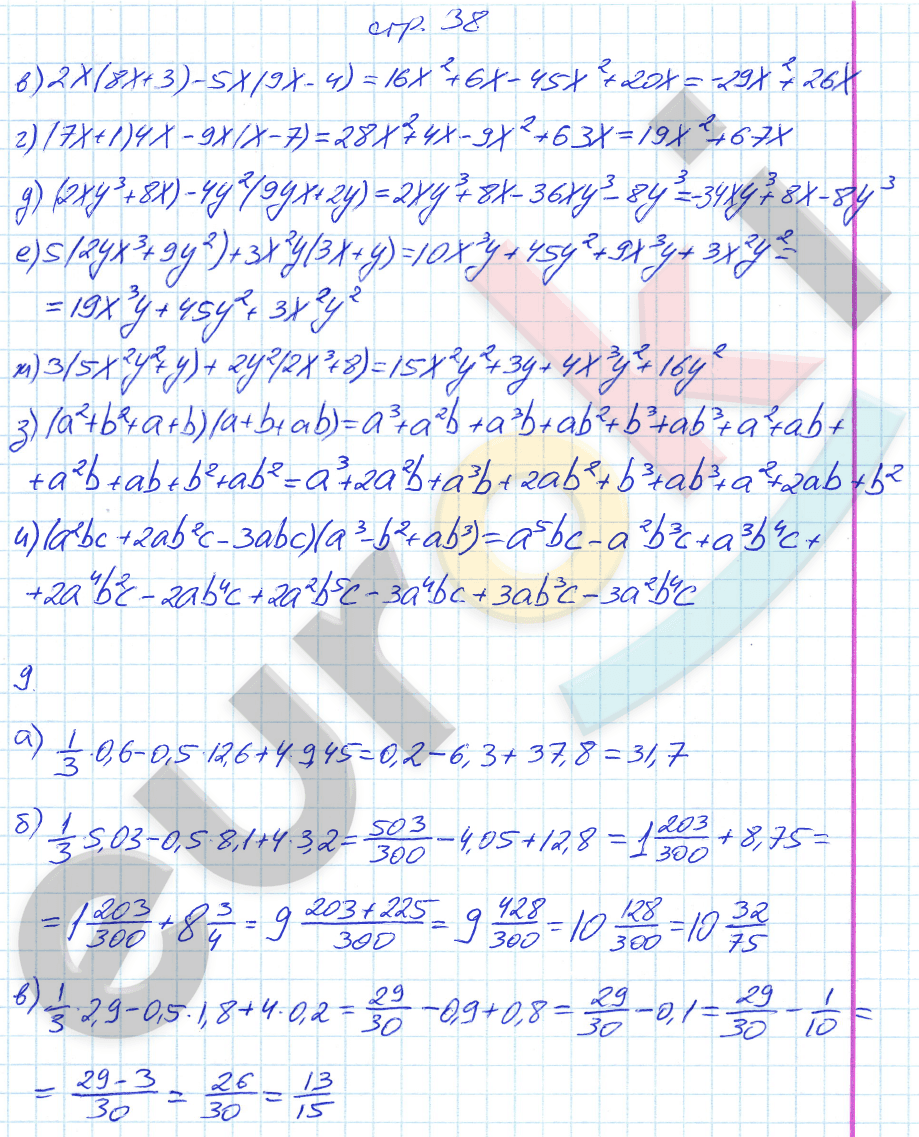 стр. 38
в) 2x(8x+3)-5x(9x-4)=16x²+6x-45x²+20x=-29x²+26x
г) (7x+1)4x-9x(x-7)=28x²+4x-9x²+63x=19x²+67x
д) (2xy³+8x)-4y²(9yx+2y)=2xy³+8x-36xy³-8y³=-34xy³+8x-8y³
е) 5(2yx³+9y²)+3x²y(3x+y)=10x³y+45y²+9x³y+3x²y²=
=19x³y+45y²+3x²y²
ж) 3(5x²y²+y)+2y²(2x³+8)=15x²y²+3y+4x³y²+16y²
з) (a²+b²+a+b)(a+b+ab)=a³+a²b+a³b+ab²+b³+ab³+a²+ab+
+a²b+ab+b²+ab²=a³+2a²b+a³b+2ab²+b³+ab³+a²+2ab+b²
и) (a²bc+2ab²c-3abc)(a³-b²+ab³)=a⁵bc-a²b³c+a³b⁴c+
+2a⁴b²c-2ab⁴c+2a²b⁵c-3a⁴bc+3ab³c-3a²b⁴c
9
а) 1/3·0,6-0,5·12,6+4·9,45=0,2-6,3+37,8=31,7
б) 1/3·5,03-0,5·8,1+4·3,2=503/300-4,05+12,8=1 203/300+8,75=
=1 203/300+8 3/4=9 (203+225)/300=9 428/300=10 128/300=10 32/75
в) 1/3·2,9-0,5·1,8+4·0,2=29/30-0,9+0,8=29/30-0,1=29/30-1/10=
=(29-3)/30=26/30=13/15
euroki